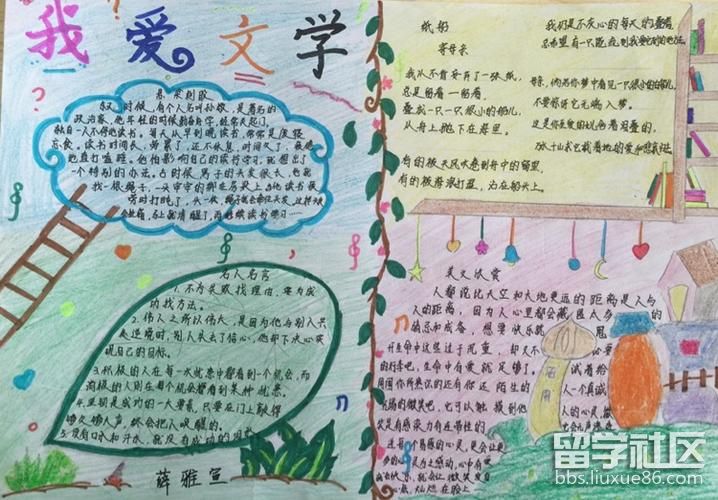 我爱文学
悬梁刺股
东汉时候，有个人名叫孙敬，是著名的
政治家，他年轻的时候勤奋好学，经常关起门，
独自一人不停地读书。每天从早到晚读书，常常是废寝
忘食。读书时间长，劳累了，还不休息，时间久了，
地直打瞌睡，他怕影响自己的读书学习，就想出了
一个特别的办法。古时候，男子的头发很长，他就
找一根绳子，一头牢牢的绑在房梁上，
当他读书疲劳时打盹了，头一低，绳子就会牵住头发，
名人名言
1.不为失败找理由，要为成
功找方法。
2.伟人之所以伟大，是因为他与别人共
处逆境时，别人失去了信心，他却下决心实
现自己的目标。
3.积极的人在每一次忧患中都看到一个机会，而
消极的人则在每个机会都看到某种忧患。
4.坚韧是成功的一大要素，只要在门上敲得
够久够大声，终会把人唤醒的。
5.没有口水和汗水，就没有成功的泪水
薛雅宣
纸船
寄母亲
我从不肯妄弃了一张纸，
总是留着一留着，
叠成一只一只很小的船儿，
从舟上抛下在海里。
有的被天风吹卷到舟中的窗里，
有的被海浪打湿，沾在船头上。
我仍是不灰心的每天的叠着，
总希望有一只能流到我要它到的地方去。
母亲，倘若你梦中看见一只很小的白船儿，
不要惊讶它无端入梦。
这是你至爱的女儿含着泪叠的，
万水千山求它载着她的爱和悲哀归去。
美文欣赏
人都说比天空和大地更远的距离是人与
人的距离，因为人心里都会藏匿太多的
偏忌和戒备，想要快乐就
开生命中这些过于沉重，却又不
的行李吧，生命中有爱就足够了。试着给
周围你所熟识的还有你还陌生的人一个真诚
礼揭的微笑吧，它可以触摸到他人的心灵，
留学社区
bbs.liuxue86.com